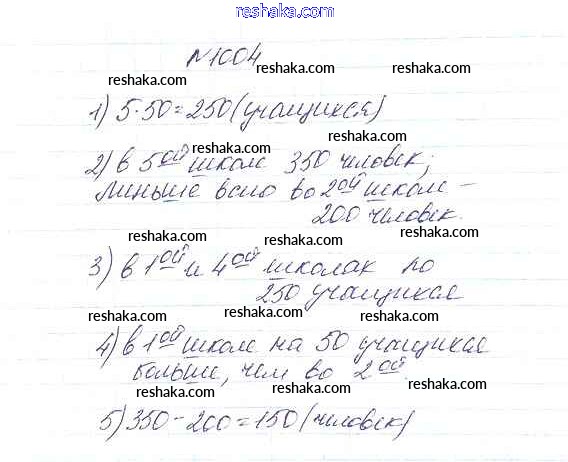 reshaka.com
№1004
reshaka.com reshaka.com
1) 5·50=250 (учащихся)
reshaka.com
2) в 5ой школе 350 человек;
reshaka.com
Меньше всего во 2ой школе –
reshaka.com
200 человек.
reshaka.com reshaka.com
3) в 1ой и 4ой школах по
reshaka.com
250 учащихся
reshaka.com reshaka.com
4) в 1ой школе на 50 учащихся
больше, чем во 2ой.
reshaka.com reshaka.com
5) 350 – 200 = 150 (человек)